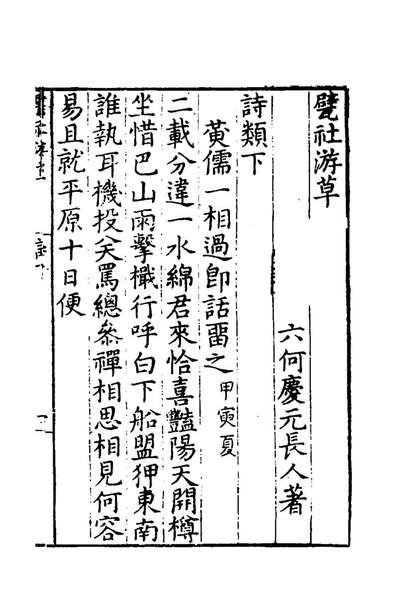 甓社游草
六何慶元長人著
詩類下
黄儒一相過卽話畱之甲寅夏
二載分違一水綿君來恰喜豔陽天開樽
坐惜巴山雨擊檝行呼白下船盟狎東南
誰執耳機投笑罵總叅禪相思相見何容
易且就平原十日便